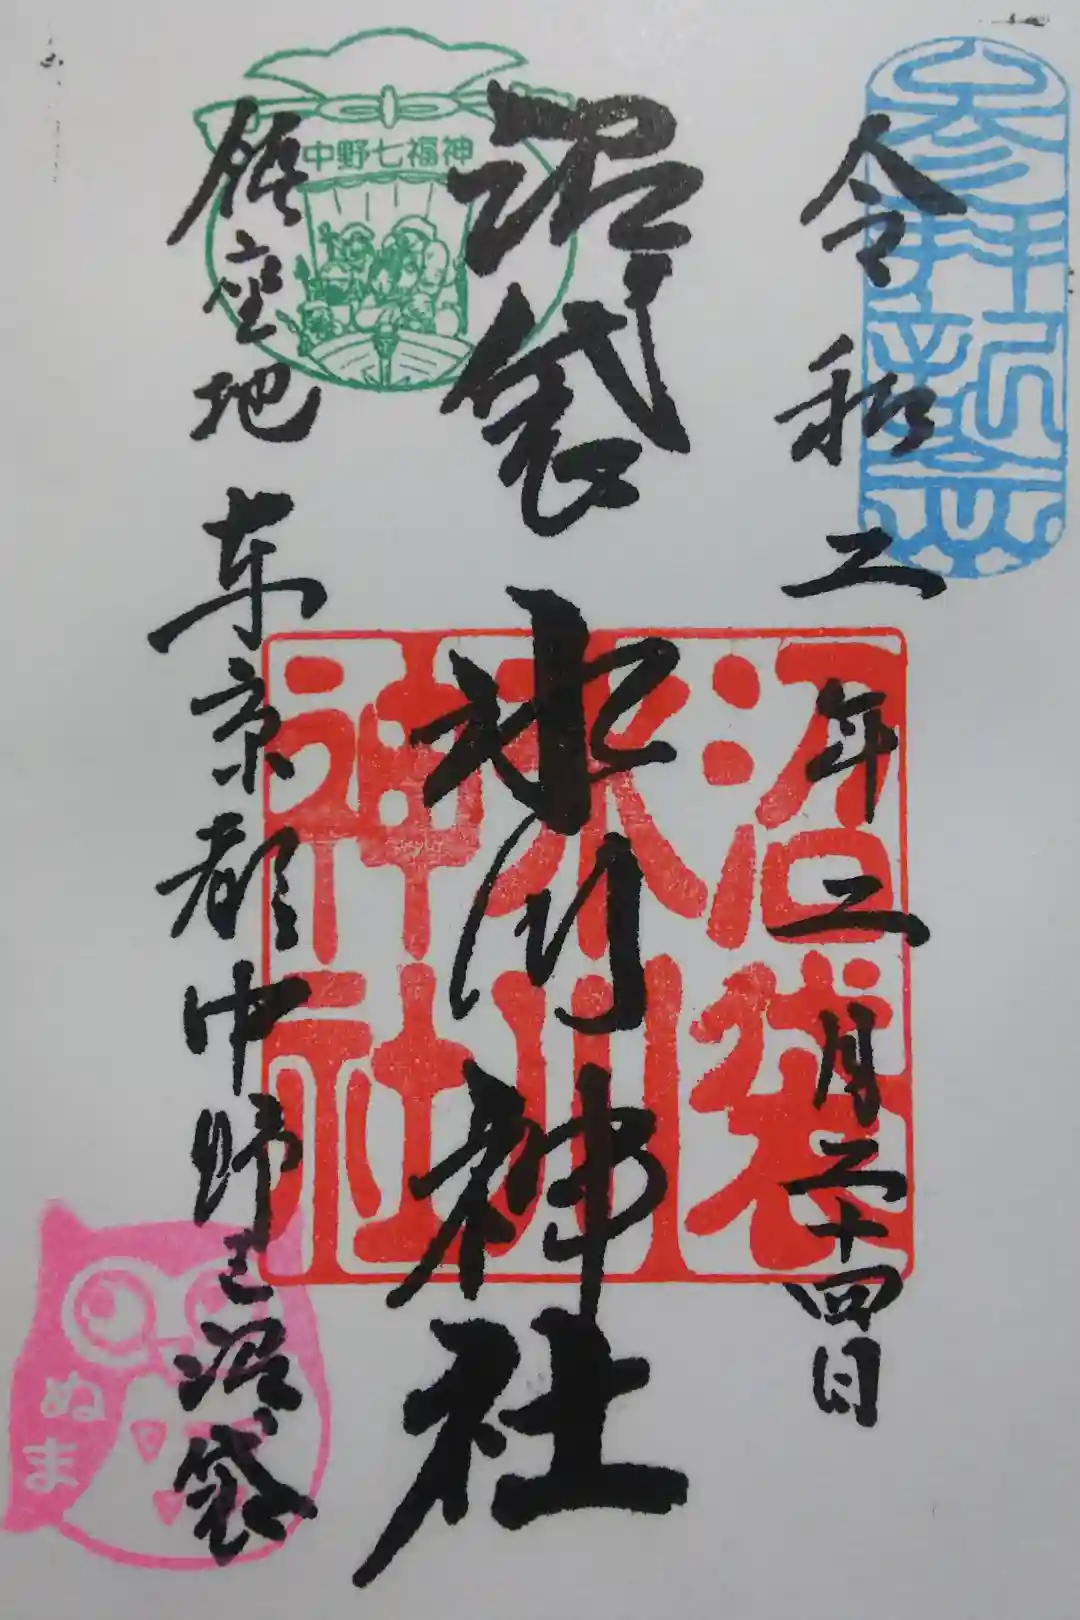 参拝祈念
令和二年二月二十四日
沼袋氷川神社
沼袋氷川神社
中野七福神
鎮座地 東京都中野区沼袋
ぬま